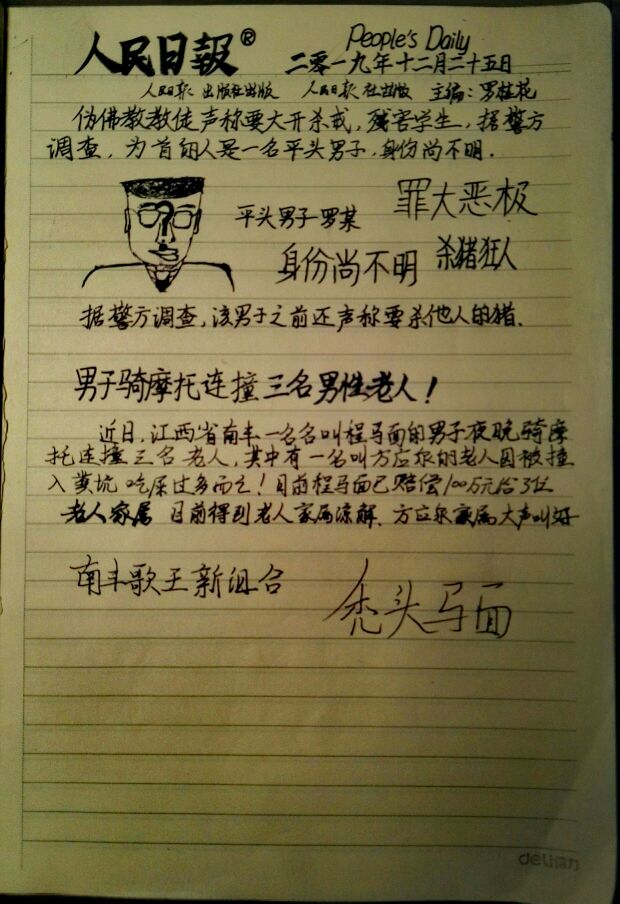 人民日報®
People's Daily
二零一九年十二月二十五日
人民日报 出版社出版 人民日报 社出版 主编：罗桂花
伪佛教教徒声称要大开杀戒，残害学生，据警方
调查，为首的人是一名平头男子，身份尚不明．
平头男子罗某
罪大恶极
身份尚不明
杀猪狂人
据警方调查，该男子之前还声称要杀他人的猪．
男子骑摩托连撞三名男性老人！
近日，江西省南丰一名名叫程马面的男子夜晚骑摩
托连撞三名老人，其中有一名叫方应的老人因被撞
入粪坑 吃屎过多而亡！目前程马面已赔偿100万元给3位
老人家属 目前得到老人家属谅解、方应家属大声叫好
南丰歌王新组合
秃头马面
deli得力